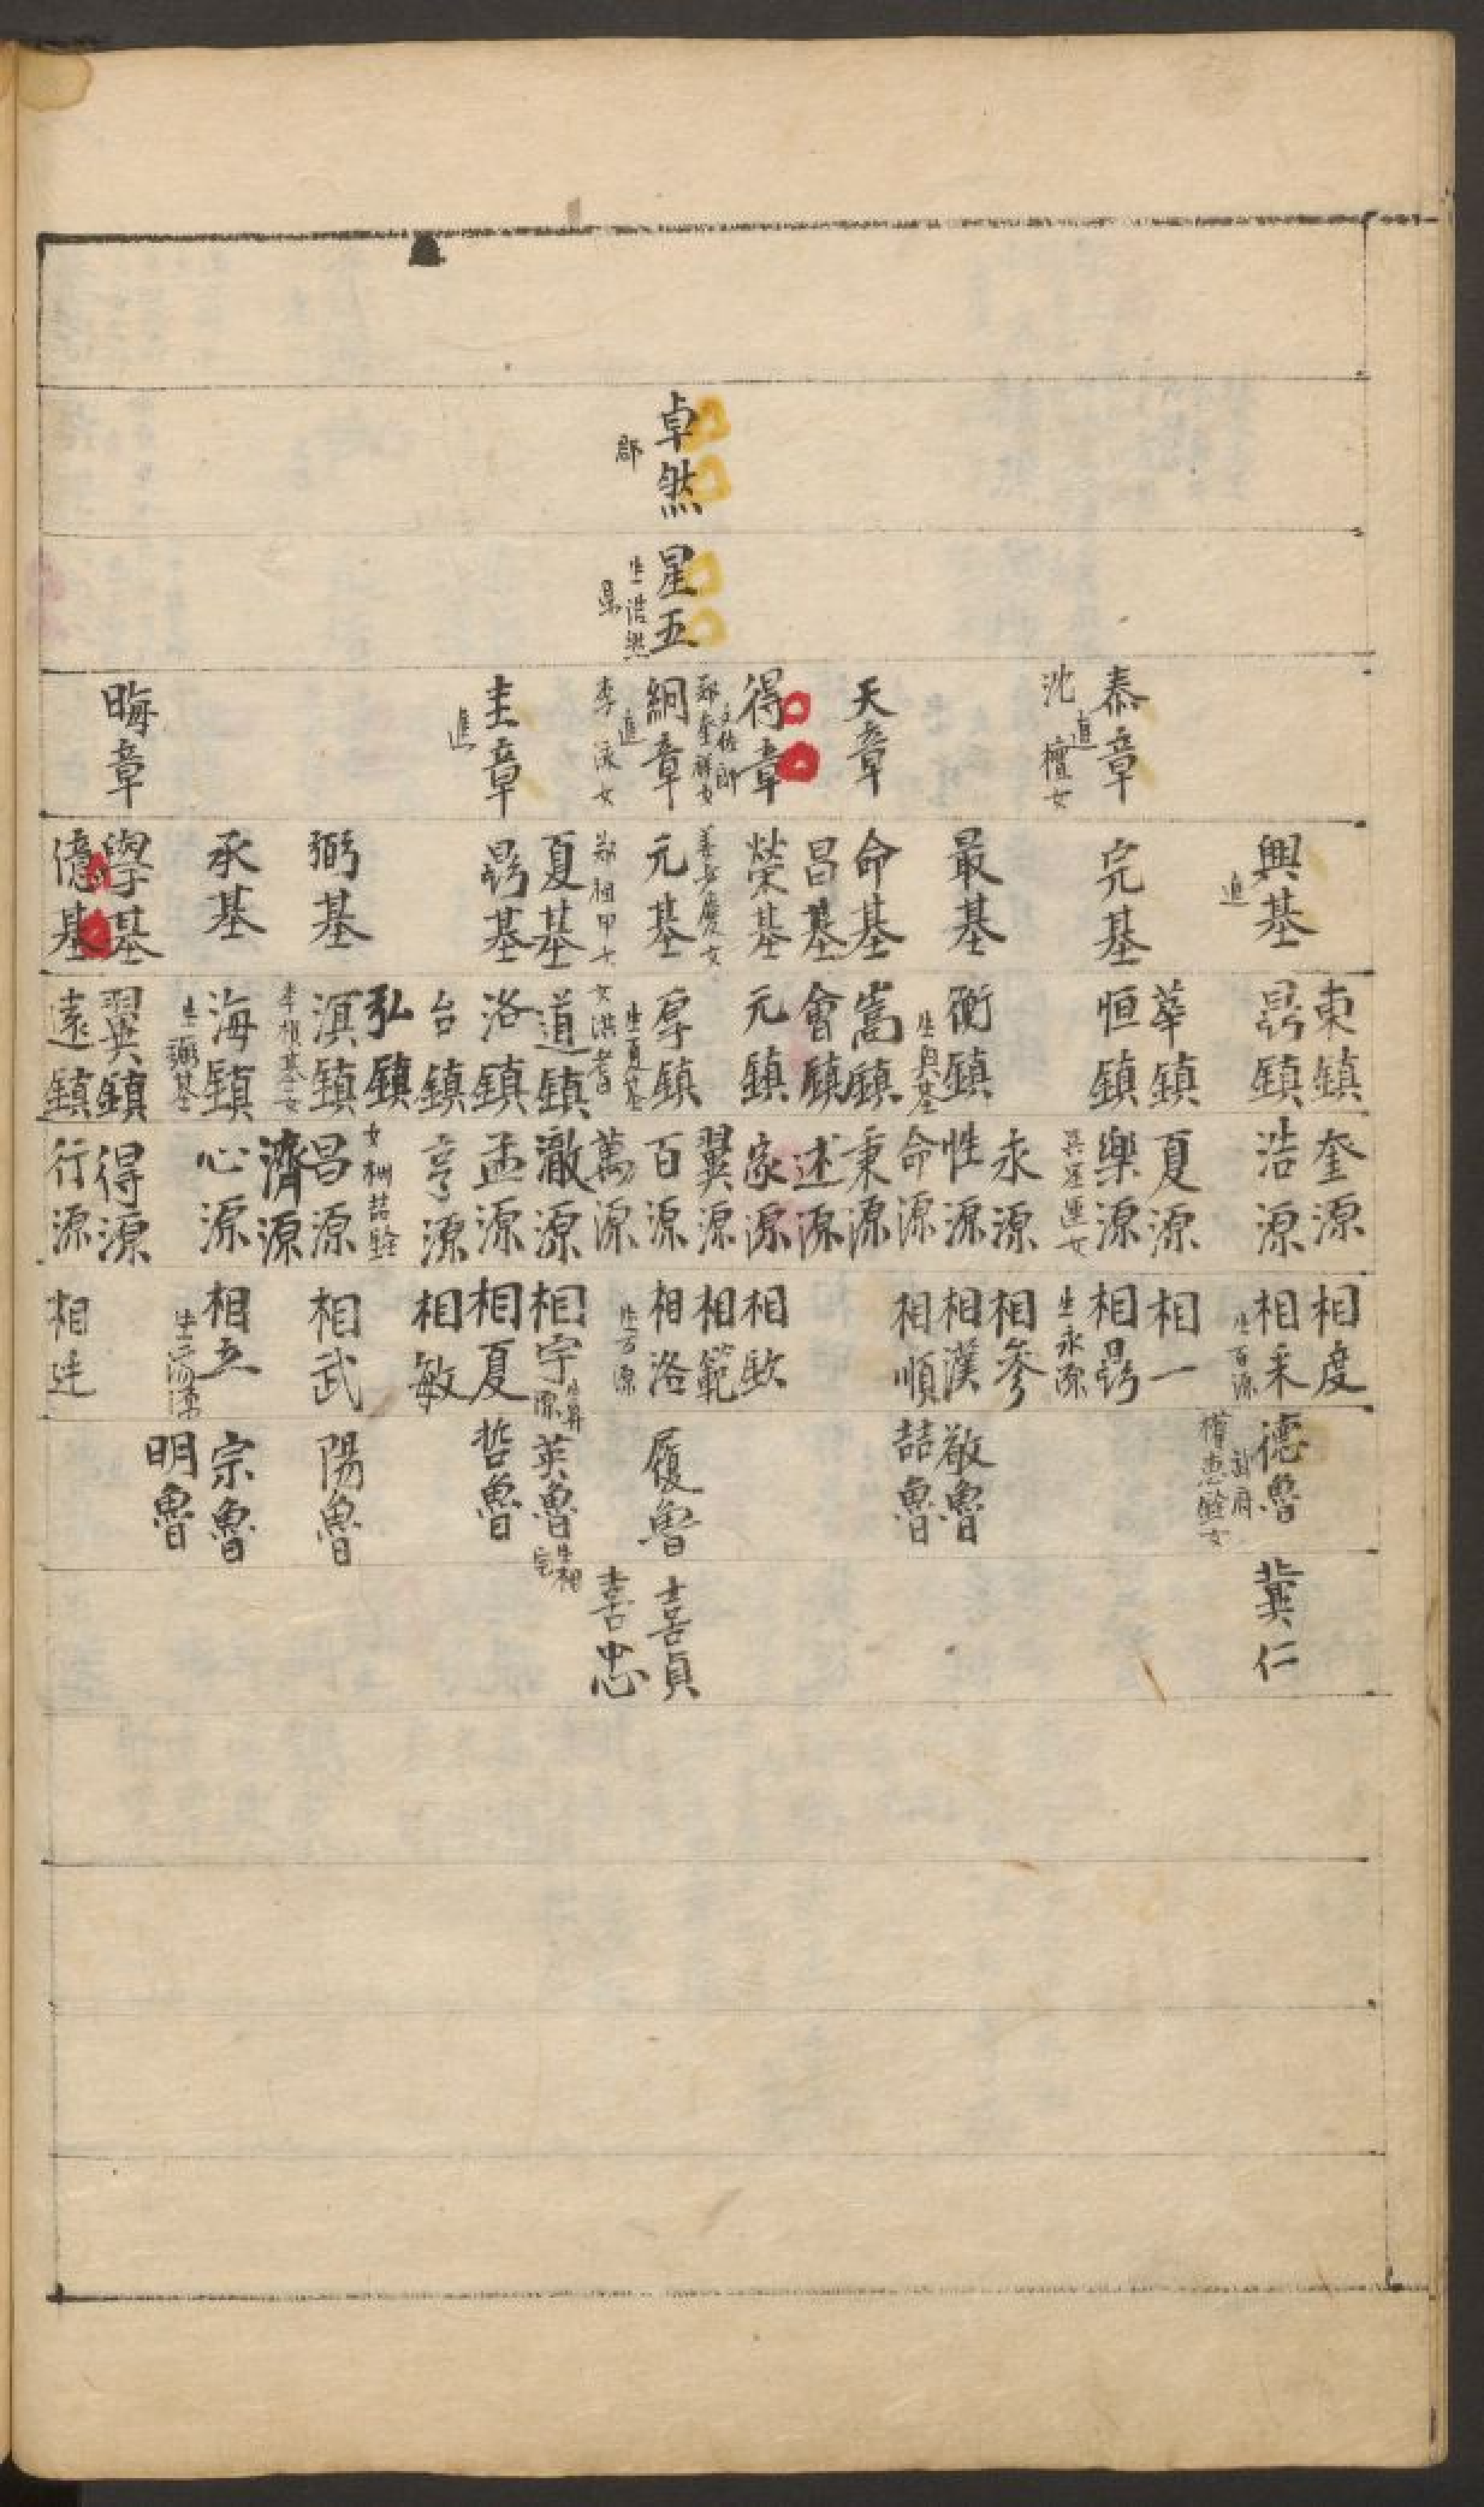 卓然
郡
星五
生浩然
泰章
進
沈
檀女
天章
得章
文佐郎
鄭奎祥女
絅章
進
李
泳女
圭章
進
晦章
興基
進
完基
最基
命基
昌基
榮基
姜必慶女
元基
鄭祖甲女
夏基
昺基
弼基
承基
學基
億基
東鎮
昺鎮
華鎮
恒鎮
衡鎮
生興基
嵩鎮
會鎮
元鎮
厚鎮
生夏基
女洪耆
道鎮
洛鎮
台鎮
弘鎮
滇鎮
李楨基女
海鎮
生弼基
翼鎮
遠鎮
奎源
浩源
夏源
樂源
永源
性源
命源
秉源
述源
家源
翼源
百源
萬源
澈源
孟源
亨源
昌源
濟源
心源
得源
行源
相度
相采
生百源
相一
相昺
生永源
相參
相漢
相順
相欽
相範
相洛
生万源
相宇
相夏
相敏
相武
相五
相廷
德魯
敬魯
喆魯
履魯
英魯
哲魯
陽魯
宗魯
明魯
冀仁
喜貞
喜忠